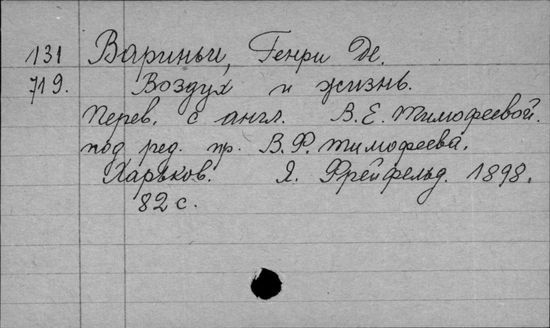 131 Вариньи, Генри Де.
719. Воздух и жизнь.
Перев. с англ. В. Е. Тимофеевой.
под ред. пр. В. Ф. Тимофеева.
Харьков. Я. Фрейфельд. 1898.
82 с.